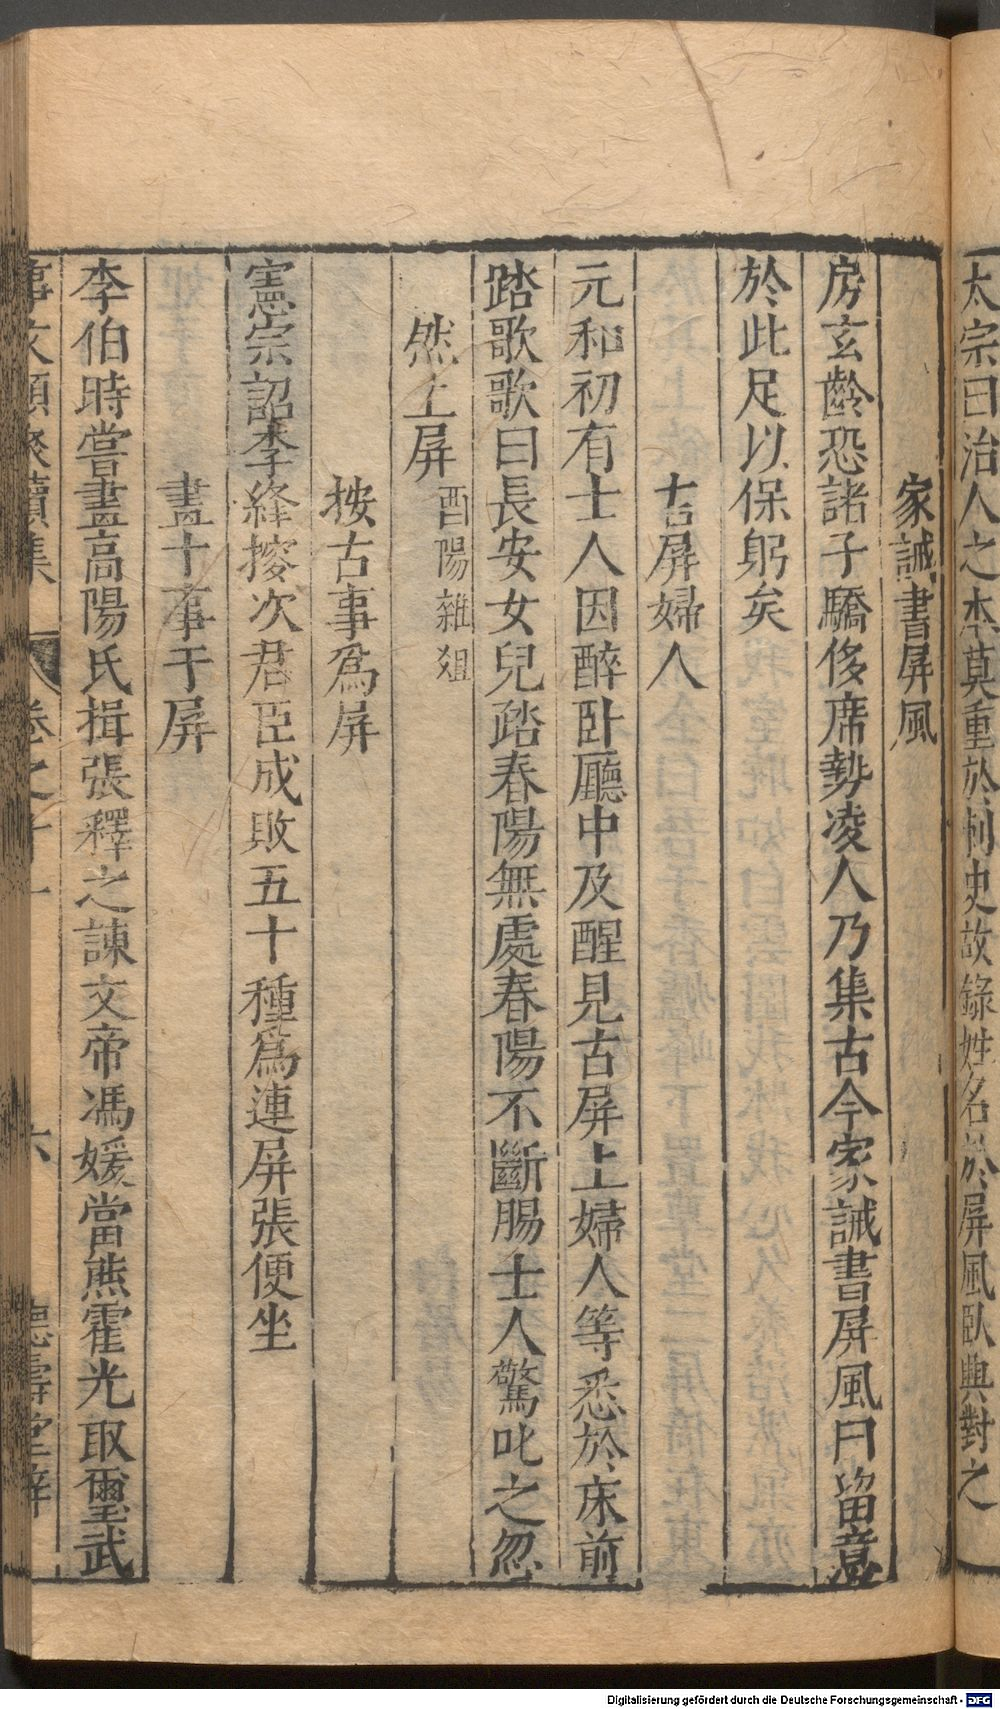 太宗曰治人之本莫重於刺史故錄姓名於屏風臥興對之
家誡書屏風
房玄齡恐諸子驕侈席勢凌人乃集古今家誡書屏風曰留意
於此足以保躬矣
古屏婦人
元和初有士人因醉臥廳中及醒見古屏上婦人等悉於床前
踏歌歌曰長安女兒踏春陽無處春陽不斷腸士人驚叱之忽
然上屏酉陽雜俎
按古事為屏
憲宗詔李絳搜次君臣成敗五十種為連屏張便坐
畫十事于屏
李伯時嘗畫高陽氏揖張釋之諫文帝馮媛當熊霍光取璽武
事文類聚續集 卷之十一 六 德壽堂梓
Digitalisierung gefördert durch die Deutsche Forschungsgemeinschaft - DFG